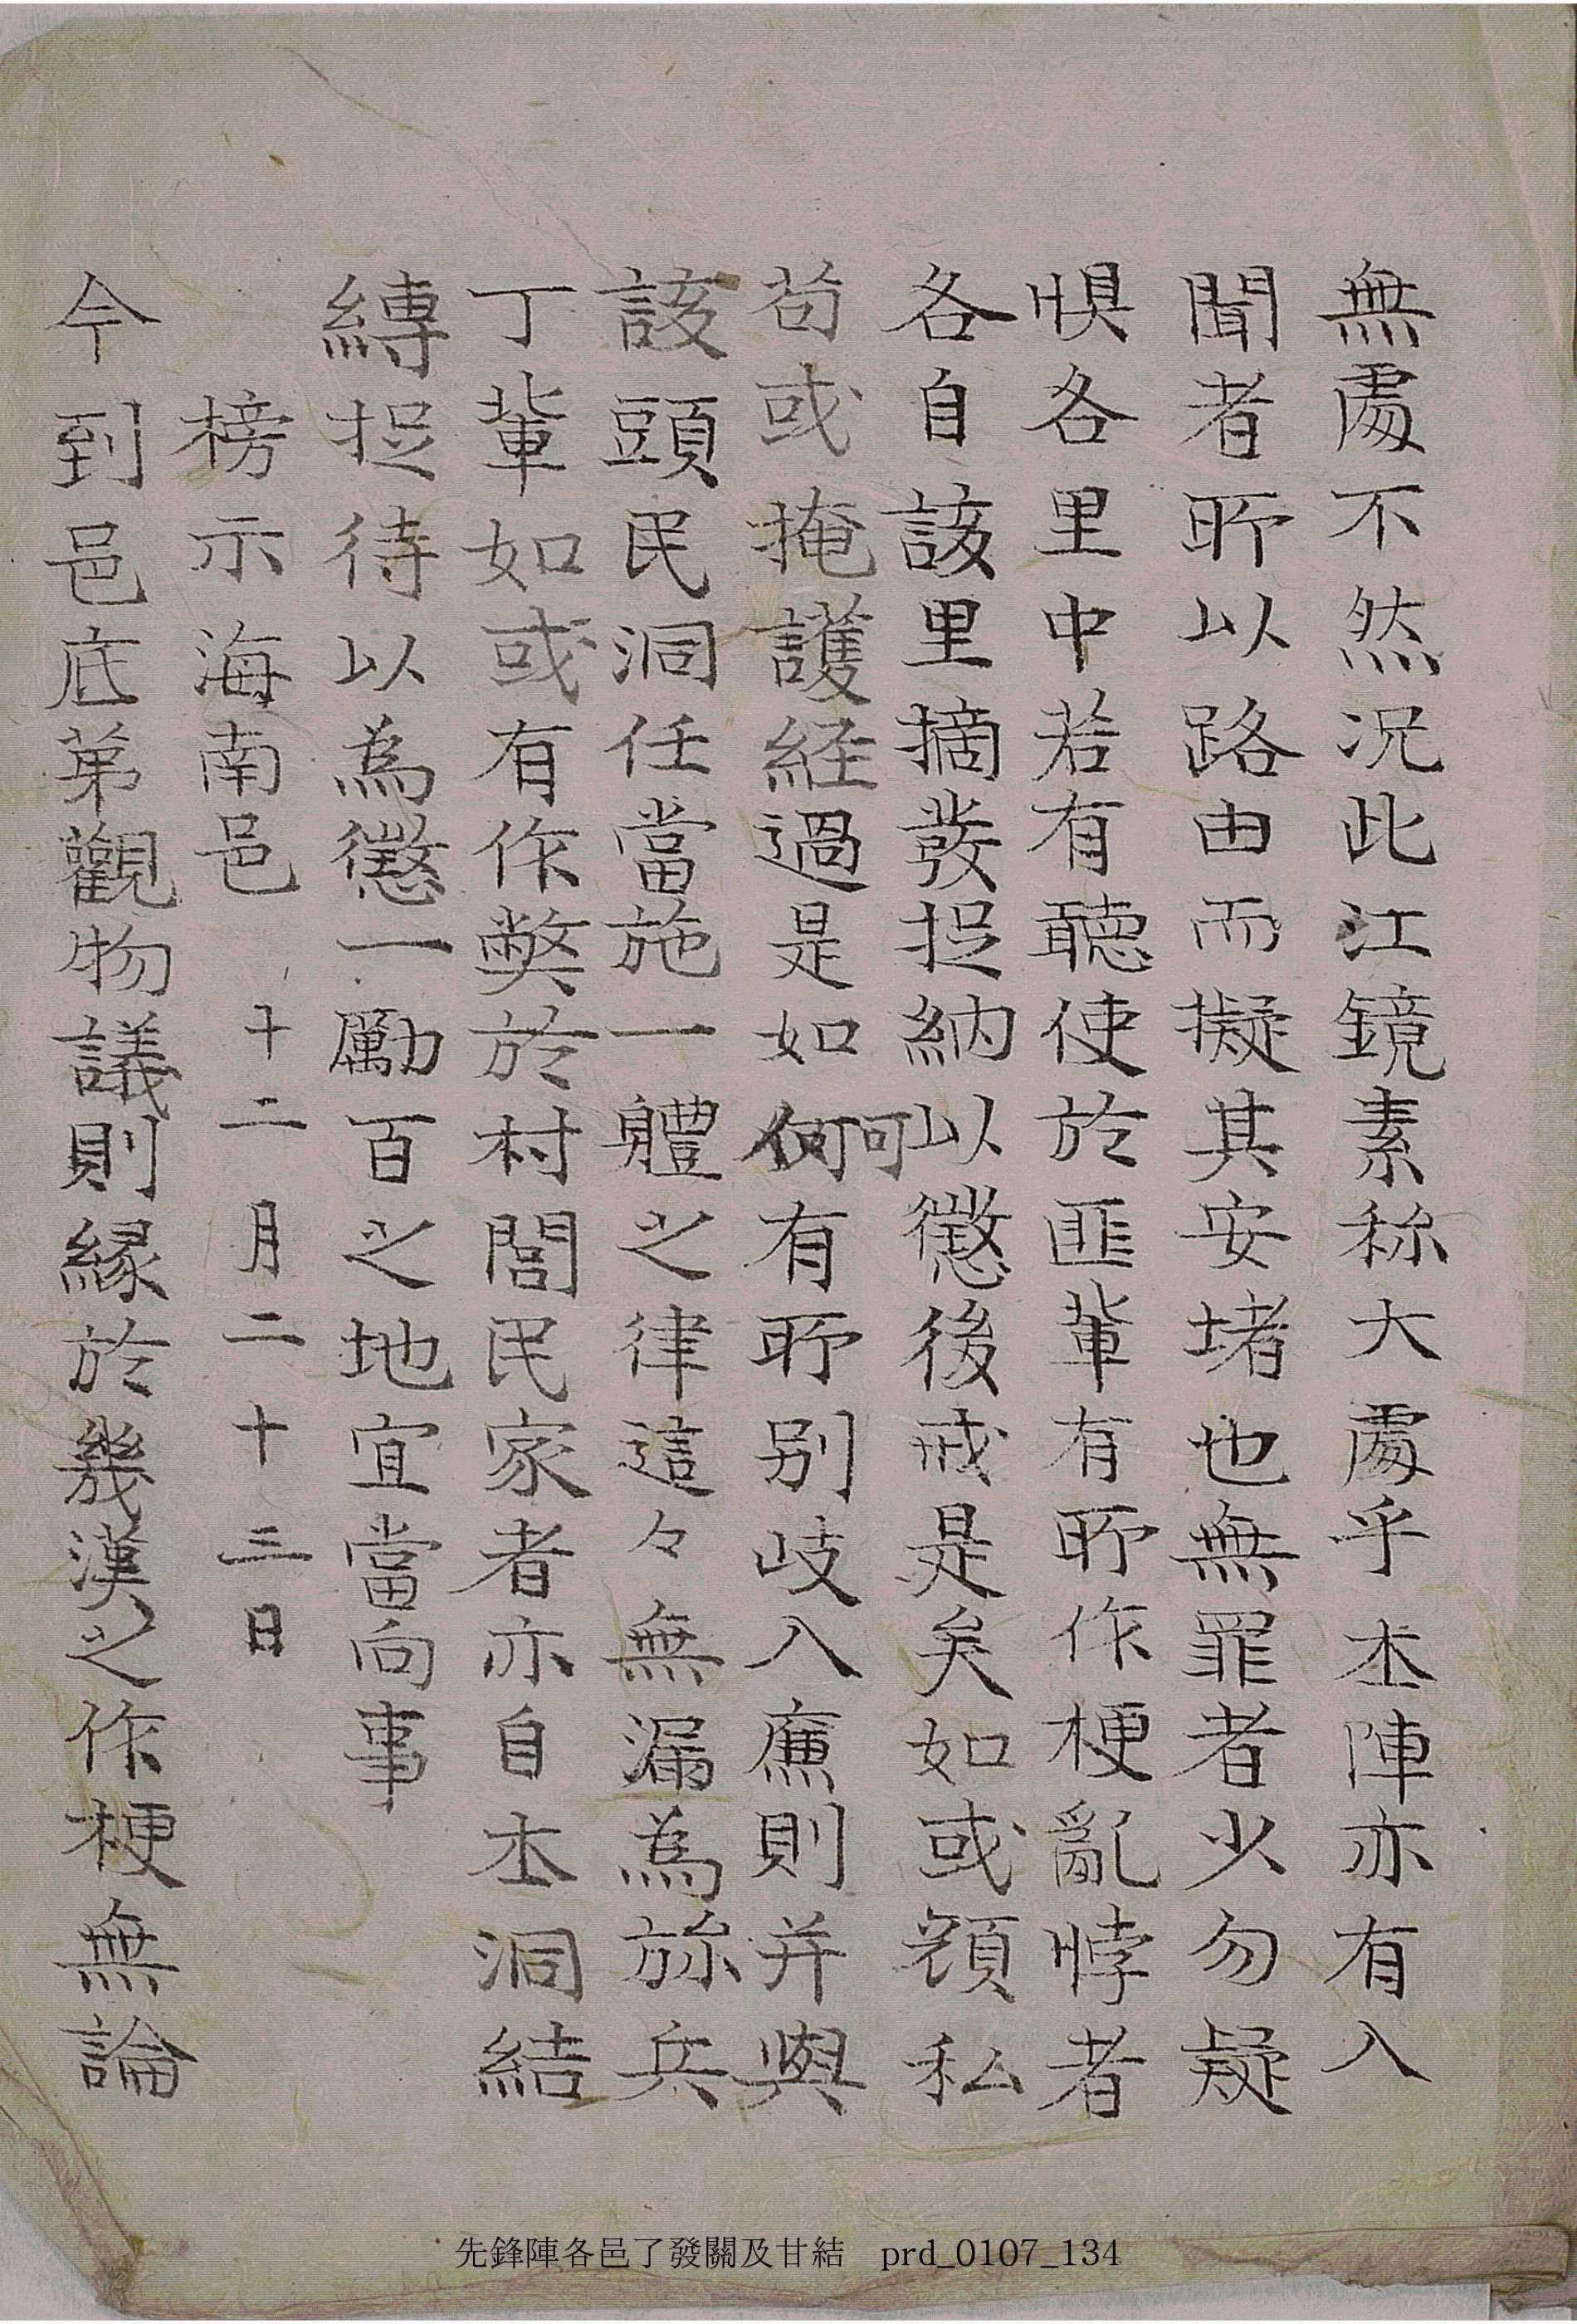 無處不然况此江鏡素称大處乎本陣亦有入
聞者所以路由而擬其安堵也無罪者少勿疑
惧各里中若有聽使於匪輩有所作梗亂悖者
各自該里摘發捉納以懲後戒是矣如或顔私
苟或掩護経過是如何可有所别歧入廉則并與
該頭民洞任當施一軆之律這々無漏為㫆兵
丁輩如或有作弊於村閭民家者亦自本洞結
縛捉待以為懲一勵百之地宜當向事
榜示海南邑 十二月二十三日
今到邑底第觀物議則緣於幾漢之作梗無論
先鋒陣各邑了發關及甘結 prd_0107_134